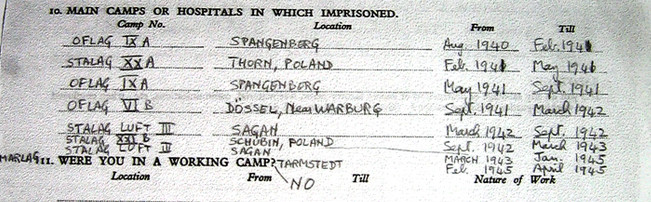 10. MAIN CAMPS OR HOSPITALS IN WHICH IMPRISONED.
Camp No. Location From Till
OFLAG IX A SPANGENBERG Aug. 1940 Feb. 1941
STALAG XXA THORN, POLAND Feb. 1941 May 1941
OFLAG IXA SPANGENBERG May 1941 Sept. 1941
OFLAG VI B DÖSSEL, Near WARBURG Sept. 1941 March 1942
STALAG LUFT III SAGAN March 1942 Sept. 1942
STALAG XXI B SCHUBIN, POLAND Sept. 1942 March 1943
STALAG LUFT III SAGAN MARCH 1943 Jan. 1945
MARLAG TARMSTEDT Feb. 1945 April 1945
11. WERE YOU IN A WORKING CAMP? NO
Location From Till Nature of Work